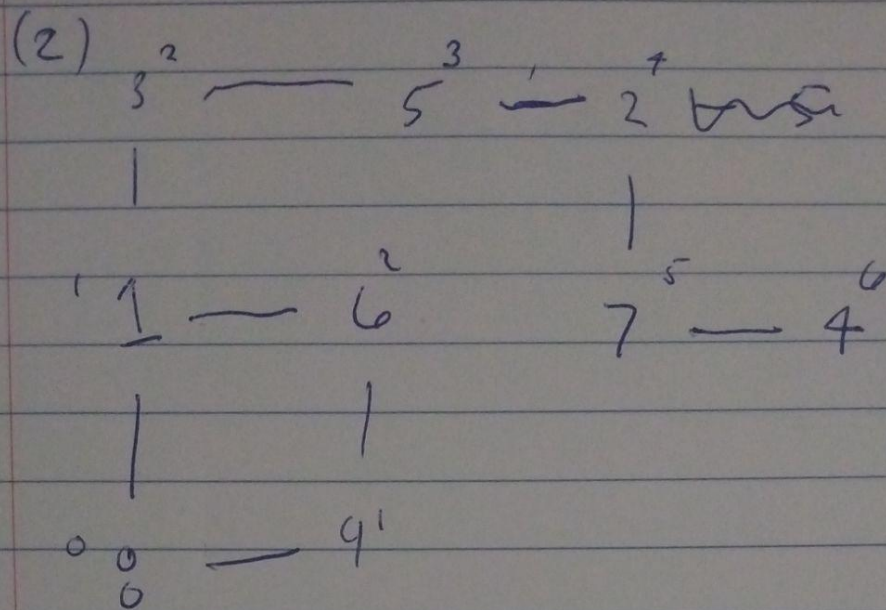 (2) 3² — 5³ — 2⁴
¹1 — 6² 7⁵ — 4⁶
⁰0 — 9¹
0